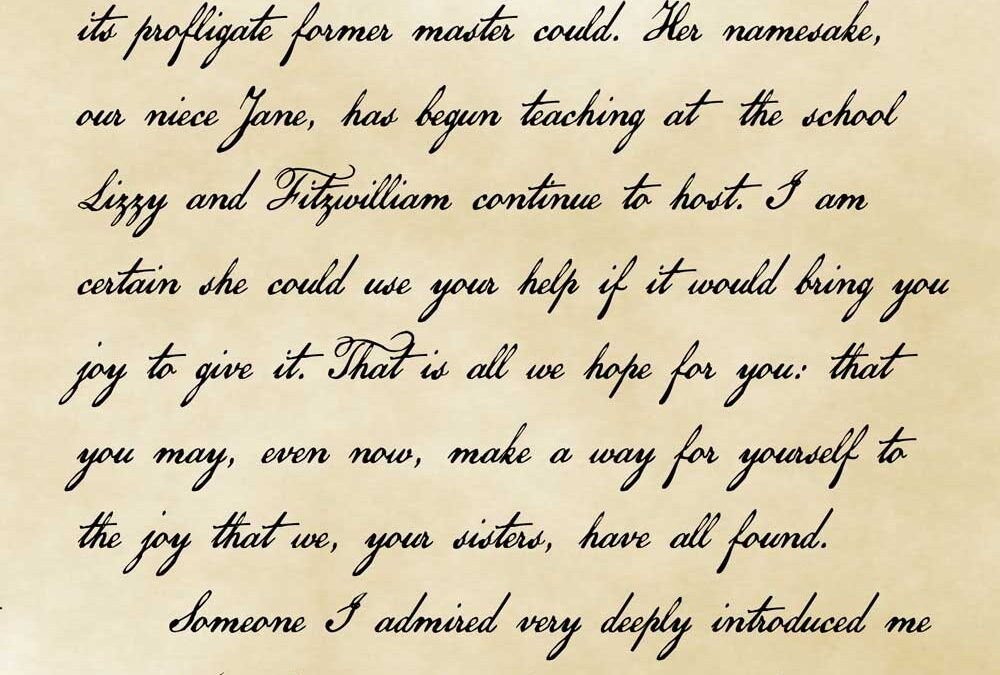 its profligate former master could. Her namesake,
our niece Jane, has begun teaching at the school
Lizzy and Fitzwilliam continue to host. I am
certain she could use your help if it would bring you
joy to give it. That is all we hope for you: that
you may, even now, make a way for yourself to
the joy that we, your sisters, have all found.
Someone I admired very deeply introduced me